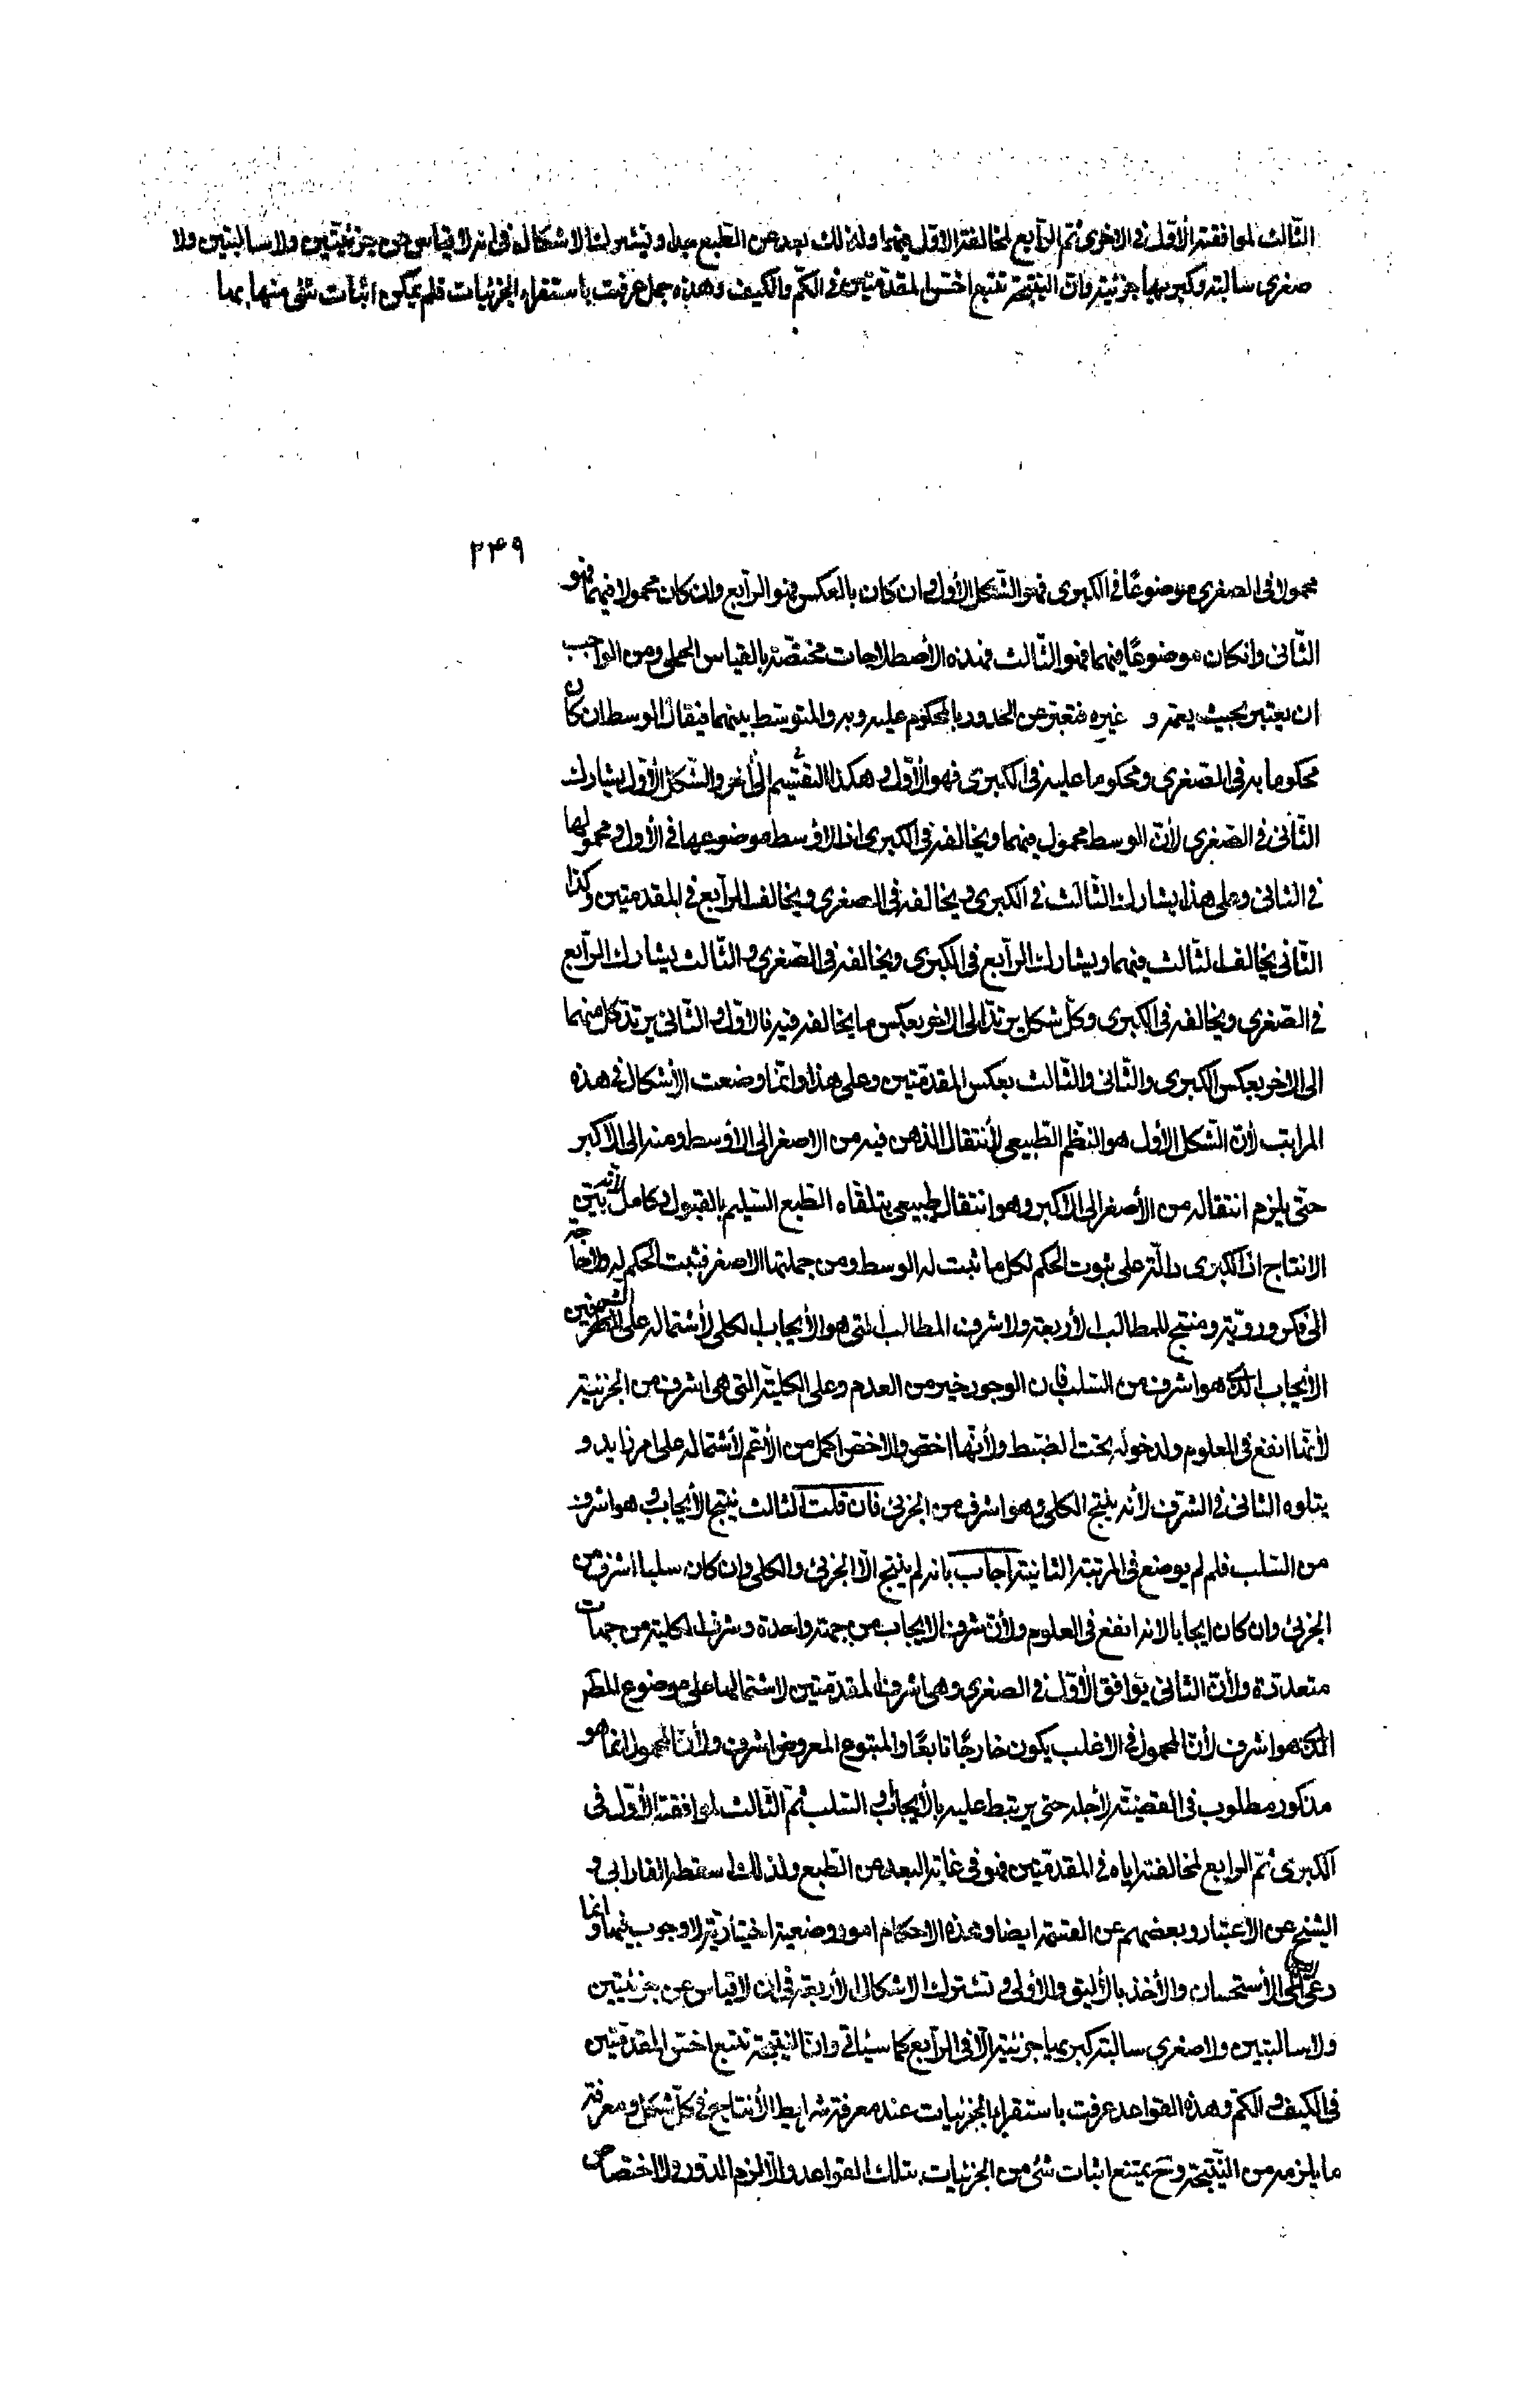 الثّالث لموافقته الأوّل فى الاخرى ثم الرّابع لمخالفته الاوّل فيهما ولذلك بعد عن الطّبع جدا وتشترك الاشكال فى انه لا قياس عن جزئيتين ولا سالبتين ولا
صغرى سالبة وكبريها جزئية وانّ النتيجة تتبع اخسّ المقدّمتين فى الكمّ والكيف وهذه جمل عرفت باستقراء الجزئيات فلم يمكن اثبات شئ منها بها
٢٤٩
محمولا فى الصغرى موضوعًا فى الكبرى فهو الشّكل الأول وان كان بالعكس فهو الرّابع وان كان محمولا فيهما فهو
الثّانى وانكان موضوعًا فيهما فهو الثّالث فهذه الأصطلاحات مختصّة بالقياس الحملى ومن الواجب
ان يعتبر بحيث يعمّه و غيره فتعبر عن الحدود بالمحكوم عليه وبه والمتوسّط بينهما فيقال الوسط ان كان
محكوما به فى الصّغرى ومحكوما عليه فى الكبرى فهو الأوّل وهكذا التّقسيم الى اخره والشّكل الأوّل يشارك
الثّانى فى الصّغرى لأنّ الوسط محمول فيهما ويخالفه فى الكبرى اذ الاوسط موضوعها فى الأول ومحمولها
فى الثانى وعلى هذا يشارك الثّالث فى الكبرى ويخالفه فى الصغرى ويخالف الرّابع فى المقدمتين وكذا
الثّانى يخالف الثّالث فيهما ويشارك الرّابع فى الكبرى ويخالفه فى الصّغرى والثّالث يشارك الرّابع
فى الصّغرى ويخالفه فى الكبرى وكلّ شكل يرتدّ الى الاخر بعكس ما يخالفه فيه فالاوّل والثّانى يرتدّ كل منهما
الى الاخر بعكس الكبرى والثّانى والثّالث بعكس المقدّمتين وعلى هذا وانّما وضعت الأشكال فى هذه
المراتب لأنّ الشّكل الأول هو النّظم الطّبيعى لأنتقال الذهن فيه من الاصغر الى الاوسط ومنه الى الاكبر
حتّى يلزم انتقاله من الأصغر الى الاكبر وهو انتقال طبيعى يتلقّاه الطّبع السّليم بالقبول وكامل لأنّه بيّن
الانتاج اذ الكبرى دالّة على ثبوت الحكم لكل ما ثبت له الوسط ومن جملتها الاصغر فثبت الحكم له ولا حاجة
الى فكر ورويّة ومنتج للمطالب الأربعة ولاشرف المطالب التى هو الأيجاب الكلى لأشتماله على الشرفين
الأيجاب الذى هو اشرف من السّلب فان الوجود خير من العدم وعلى الكليّة التى هى اشرف من الجزئية
لأنّها انفع فى العلوم ولدخوله تحت الضبط ولأنّها اخصّ والاخصّ اكمل من الأعّم لأشتماله على امر زايد و
يتلوه الثانى فى الشرّف لأنه ينتج الكلى وهو اشرف من الجزئى فان قلت الثالث ينتج الأيجاب وهو اشرف
من السّلب فلم لم يوضع فى المرتبة الثانية اجاب بانه لم ينتج الّا الجزئى والكلى وان كان سلبا اشرف من
الجزئى وان كان ايجابا لانه انفع فى العلوم ولأنّ شرف الايجاب من جهة واحدة وشرف الكلية من جهات
متعدّدة ولأنّ الثانى يوافق الأوّل فى الصغرى وهى اشرف المقدّمتين لاشتمالها على موضوع المطّ
الذى هو اشرف لأنّ المحمول فى الاغلب يكون خارجًا تابعًا والمتبوع المعروض اشرف ولأنّ المحمول انما هو
مذكور مطلوب فى القضيّة لأجله حتى يرتبط عليه بالأيجاب والسّلب ثمّ الثّالث لموافقته الأوّل فى
الكبرى ثمّ الرابع لمخالفته اياه فى المقدمتين فهو فى غاية البعد عن الطّبع ولذلك اسقطه الفارابى و
الشيخ عن الاعتبار وبعضهم عن القسمة ايضا وهذه الاحكام امور وضعية اختياريّة لا وجوب فيها وانما
دعى اليها الأستحسان والأخذ بالأليق والأولى وتشترك الاشكال الأربعة فى ان لا قياس عن جزئيتين
ولا سالبتين ولا صغرى سالبة كبريها جزئية الّا فى الرّابع كما سيأتى وانّ النتيجة تتبع اخسّ المقدّمتين
فى الكيف والكمّ وهذه القواعد عرفت باستقراء الجزئيات عند معرفة شرايط الأنتاج فى كلّ شكل ومعرفة
ما يلزمه من النّتيجة وح يمتنع اثبات شئ من الجزئيات بتلك القواعد والّا لزم الدّور والاختصاص